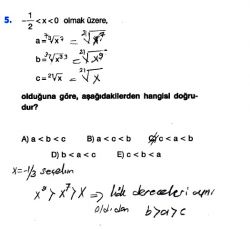 5. -1/2 < x < 0 olmak üzere,
a = ³√x⁷ = ²¹√x⁷
b = ⁷√x³³ = ²¹√x⁹
c = ²¹√x = ²¹√x
olduğuna göre, aşağıdakilerden hangisi doğru-
dur?
A) a < b < c B) a < c < b C) c < a < b
D) b < a < c E) c < b < a
x = -1/3 seçelim
x⁹ > x⁷ > x ⇒ kök dereceleri aynı
olduğundan b > a > c